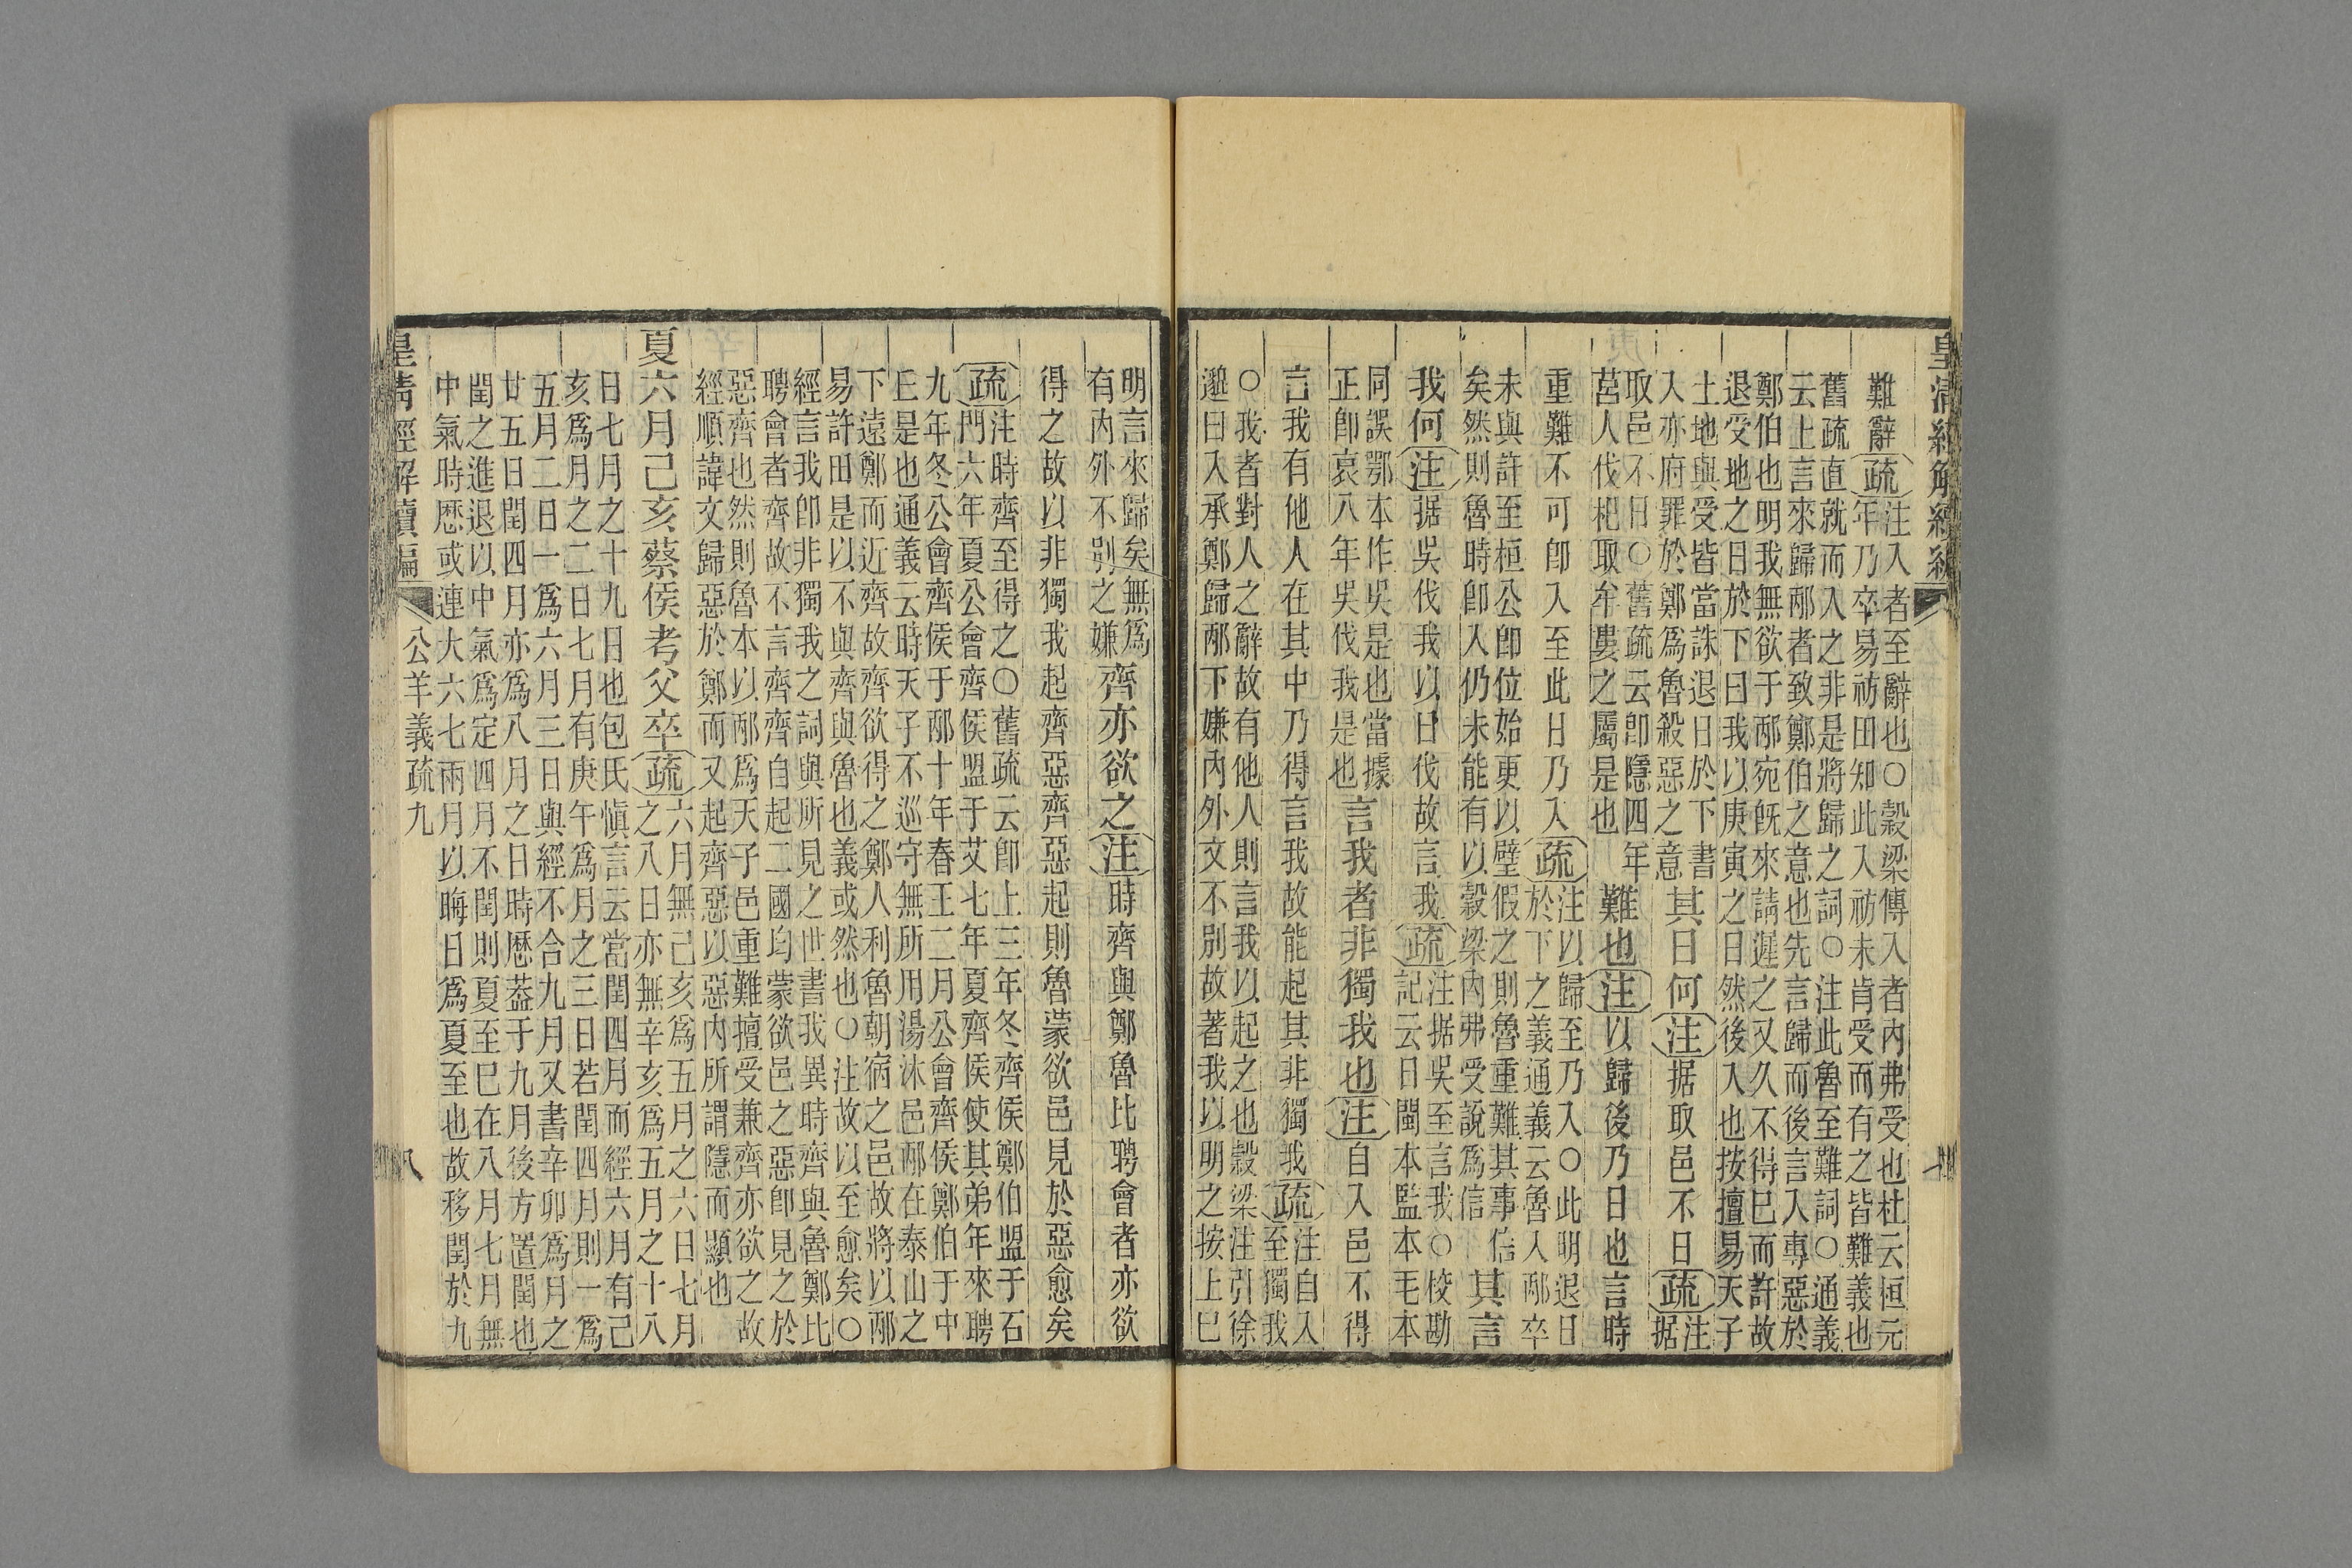 皇清經解續編
難辭疏注入者至辭也○穀梁傳入者內弗受也杜云桓元
年乃卒易祊田知此入祊未肯受而有之皆難義也
舊疏直就而入之非是將歸之詞○注此魯至難詞○通義
云上言來歸邴者致鄭伯之意也先言歸而後言入專惡於
鄭伯也明我無欲于邴宛旣來請遲之又久不得已而許故
退受地之日於下曰我以庚寅之日然後入也按擅易天子
土地與受皆當誅退日於下書
入亦府罪於鄭爲魯殺惡之意其日何注据取邑不日疏注
据
取邑不日○舊疏云卽隱四年
莒人伐杞取牟婁之屬是也難也注以歸後乃日也言時
重難不可卽入至此日乃入疏注以歸至乃入○此明退日
於下之義通義云魯入邴卒
未與許至桓公卽位始更以璧假之則魯重難其事信
矣然則魯時卽入仍未能有以穀梁內弗受說爲信其言
我何注据吳伐我以日伐故言我疏注据吳至言我○校勘
記云日閩本監本毛本
同誤鄂本作吳是也當據
正卽哀八年吳伐我是也言我者非獨我也注自入邑不得
言我有他人在其中乃得言我故能起其非獨我疏注自入
至獨我
○我者對人之辭故有他人則言我以起之也穀梁注引徐
邈曰入承鄭歸邴下嫌內外文不別故著我以明之按上巳
明言來歸矣無爲
有內外不別之嫌齊亦欲之注時齊與鄭魯比聘會者亦欲
得之故以非獨我起齊惡齊惡起則魯蒙欲邑見於惡愈矣
疏注時齊至得之○舊疏云卽上三年冬齊侯鄭伯盟于石
門六年夏公會齊侯盟于艾七年夏齊侯使其弟年來聘
九年冬公會齊侯于邴十年春王二月公會齊侯鄭伯于中
巨是也通義云時天子不巡守無所用湯沐邑邴在泰山之
下遠鄭而近齊故齊欲得之鄭人利魯朝宿之邑故將以邴
易許田是以不與齊與魯也義或然也○注故以至愈矣○
經言我卽非獨我之詞與所見之世書我異時齊與魯鄭比
聘會者齊故不言齊齊自起二國均蒙欲邑之惡卽見之於
惡齊也然則魯本以邴爲天子邑重難擅受兼齊亦欲之故
經順諱文歸惡於鄭而又起齊惡以惡內所謂隱而顯也
夏六月己亥蔡侯考父卒疏六月無己亥爲五月之六日七月
之八日亦無辛亥爲五月之十八
日七月之十九日也包氏愼言云當閏四月而經六月有己
亥爲月之二日七月有庚午爲月之三日若閏四月則一爲
五月二日一爲六月三日與經不合九月又書辛卯爲月之
廿五日閏四月亦爲八月之日時厤葢于九月後方置閏也
閏之進退以中氣爲定四月不閏則夏至巳在八月七月無
中氣時厤或連大六七兩月以晦日爲夏至也故移閏於九
皇清經解續編 公羊義疏九 八